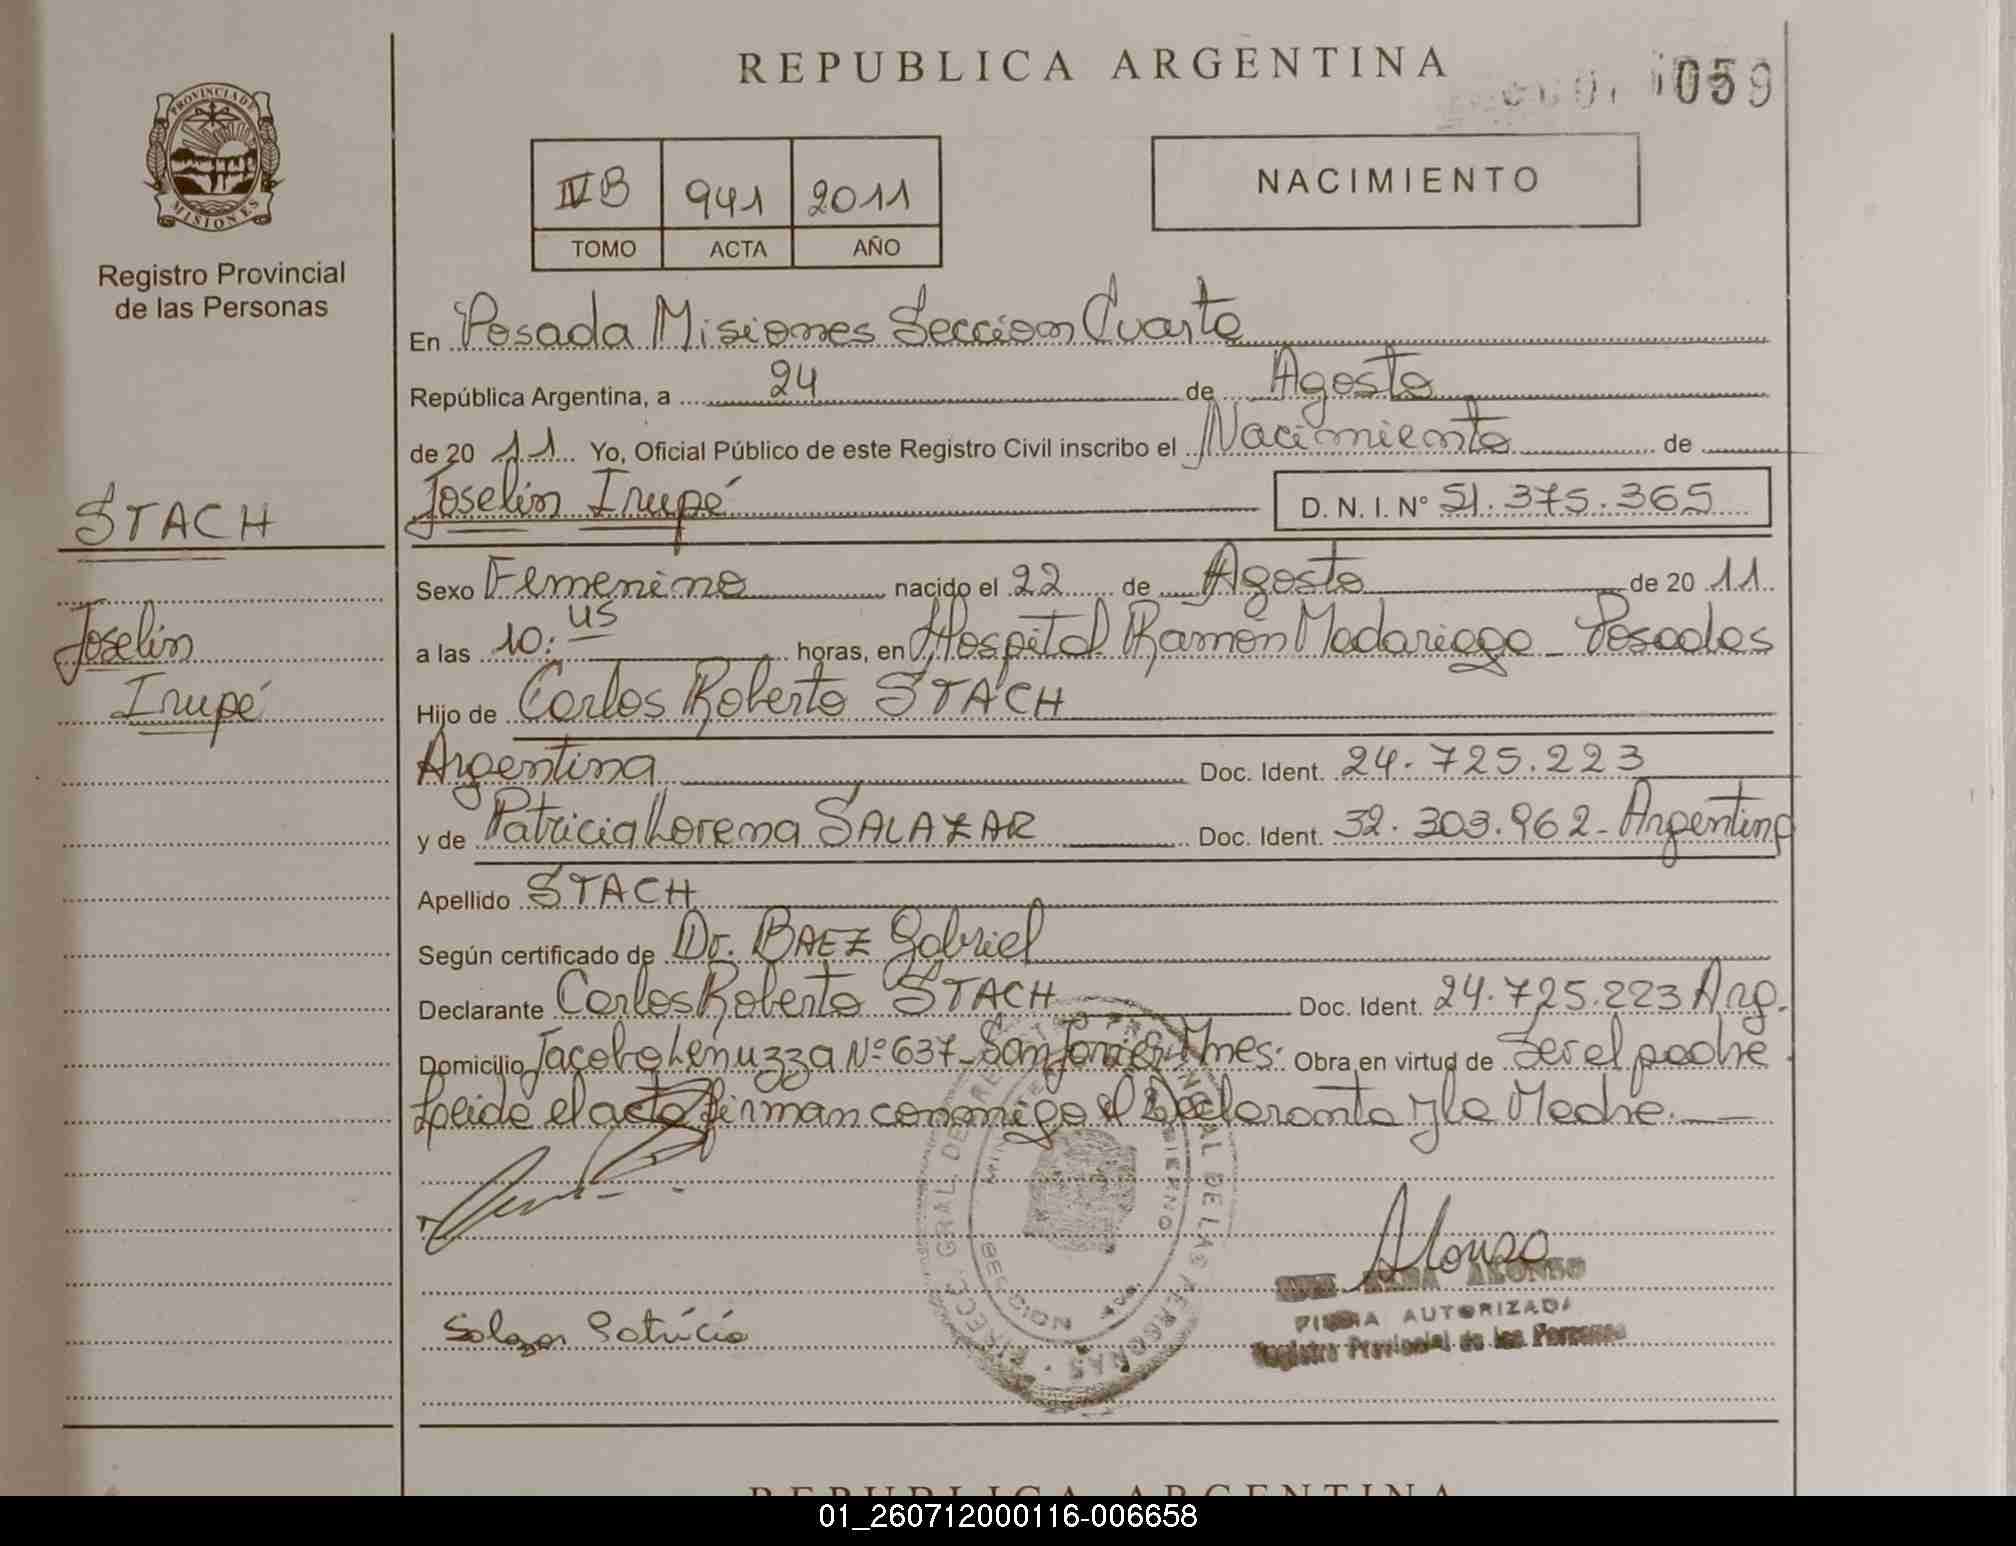 REPUBLICA ARGENTINA
059
PROVINCIA DE
MISIONES
Registro Provincial
de las Personas
IVB 941 2011
TOMO ACTA AÑO
NACIMIENTO
En Posada Misiones Sección Cuarta
República Argentina, a 24 de Agosto
de 2011 Yo, Oficial Público de este Registro Civil inscribo el Nacimiento de
Joselin Irupé D. N. I. N° 51.375.365
STACH
Joselin
Irupé
Sexo Femenino nacido el 22 de Agosto de 2011
a las 10:45 horas, en Hospital Ramón Madariaga - Posadas
Hijo de Carlos Roberto STACH
Argentina Doc. Ident. 24.725.223
y de Patricia Lorena SALAZAR Doc. Ident. 32.303.962 - Argentina
Apellido STACH
Según certificado de Dr. BAEZ Gabriel
Declarante Carlos Roberto STACH Doc. Ident. 24.725.223 Arg.
Domicilio Jacobo Lenuzza N° 637 - San Javier Mnes. Obra en virtud de Ser el padre
Leida el acta firman conmigo el Declarante y la Madre.
Alonso
ALONSO
FIRMA AUTORIZADA
Registro Provincial de las Personas
Salazar Patricia
REPUBLICA ARGENTINA
01_260712000116-006658